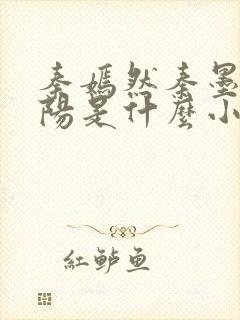 秦嫣然秦墨
陽是什麼小
紅鲈魚